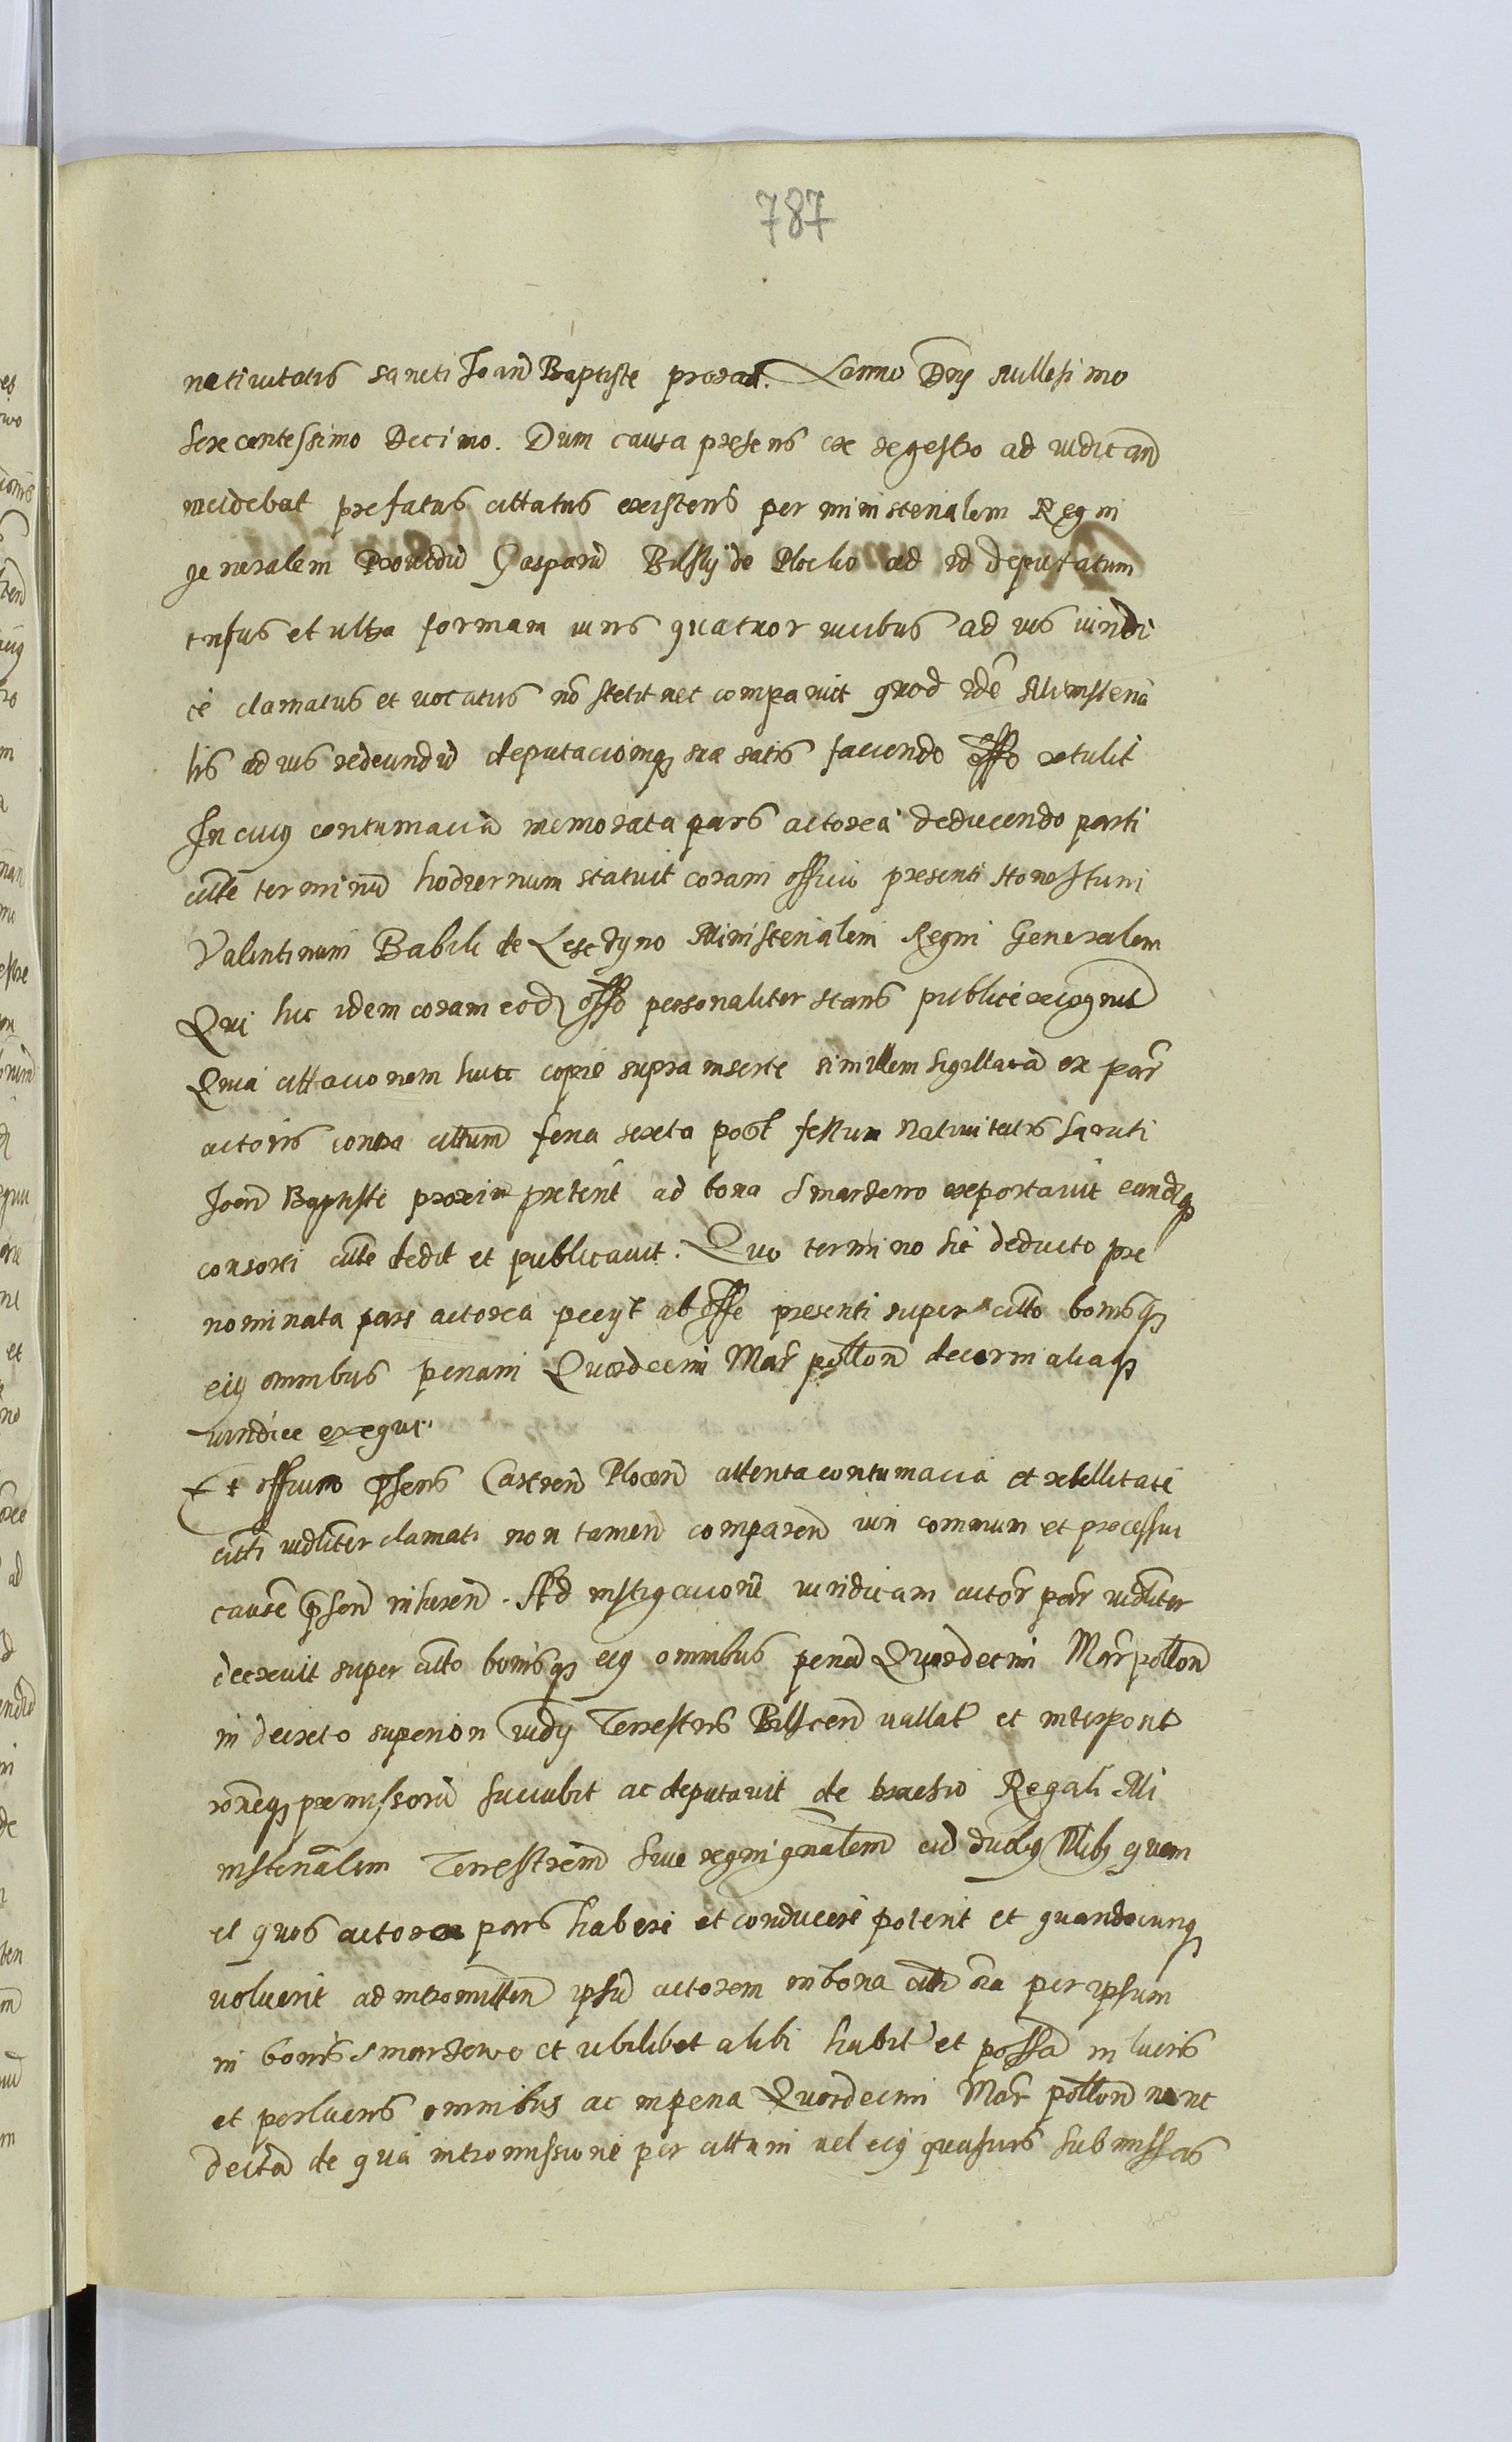 787
nativitatis sancti Joañ Baptiste proxã. Anno Dnj Millesimo
Sexcentessimo Decimo. Dum causa presens ex regestro ad iudicand
incidebat prefatus cittatus existens per ministerialem Regni
generalem Providũ Gasparũ Bilsky de Plocko ad id deputatum
infus et ultra formam iuris quatuor vicibus ad ius iuridi
cè clamatus et vocatus nõ stetit nec comparuit quod idẽ Ministeria
lis ad ius redeundũ deputacioniq suæ satis faciendo offo retulit
In cuiq contumaciã memorata pars actorea deducendo parti
citte terminũ hodiernum statuit coram officio presenti Honestum
Valentinum Babili de Leschyno Ministerialem Regni Generalem
Qui hic idem coram eod offo personaliter stans publicè recognuit
Quia cittacionem huic copiæ supra inserte similem sigillatã ex par
actoris contra cittum feria sexta post festum Nativitatis Sancti
Joañ Baptiste proxim preterit ad bona Smardzewo exportavit eandq
consorti citte dedit et publicavit. Quo termino sic deducto pre
nominata pars actorea peeyt ab offo presenti super citto bonisq
eiq omnibus penam Quordecim Mar pollon decerni aliaq
iuridice exequi.
Et officium pñsens Castreñ Ploceñ attenta contumacia et rebellitate
citti iudliter clamati non tamen compareñ iuri communi et processui
cause pñseñ inhæreñ. Ad instigacionẽ iuridicam actor par iudliter
decrevit super citto bonisq eiq omnibus penã Quordecim Mar pollon
in decreto superiori Iudij Terrestris Bilsceñ vallat et interposit
rõneq premissorũ succubit ac deputavit de brachio Regali Mi
nisterialem Terrestrem sive regni gñalem cũ duobq Nlibq quem
et quos actorea pars habere et conducere poterit et quandocunq
voluerit ad intromitten ipsũ actorem in bona citti oia per ipsum
in bonis Smardzewo et ubilibet alibi habit et possã in lucris
et perlucris omnibus ac in pena Quordecim Mar pollon nunc
decta de qua intromissione per cittum vel eiq quasuis submissas